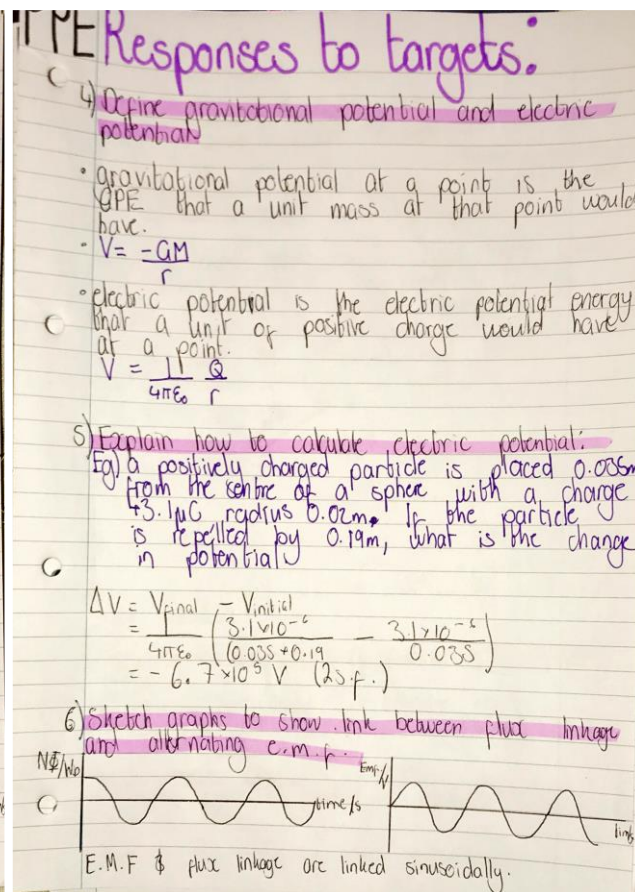 PPE Responses to targets:
4) Define gravitational potential and electric
potential
• gravitational potential at a point is the
GPE that a unit mass at that point would
have.
• V = -GM
r
• electric potential is the electric potential energy
that a unit of positive charge would have
at a point.
V = 1 Q
4πε₀ r
5) Explain how to calculate electric potential:
Eg) a positively charged particle is placed 0.035m
from the centre of a sphere with a charge
+3.1μC radius 0.02m. If the particle
is repelled by 0.19m, what is the change
in potential
ΔV = Vfinal - Vinitial
= 1 (3.1×10⁻⁶ - 3.1×10⁻⁶)
4πε₀ (0.035+0.19 0.035
= -6.7×10⁵ V (2s.f.)
6) Sketch graphs to show link between flux linkage
and alternating e.m.f.
NΦ/Wb Emf/V
time/s time/s
E.M.F & flux linkage are linked sinusoidally.